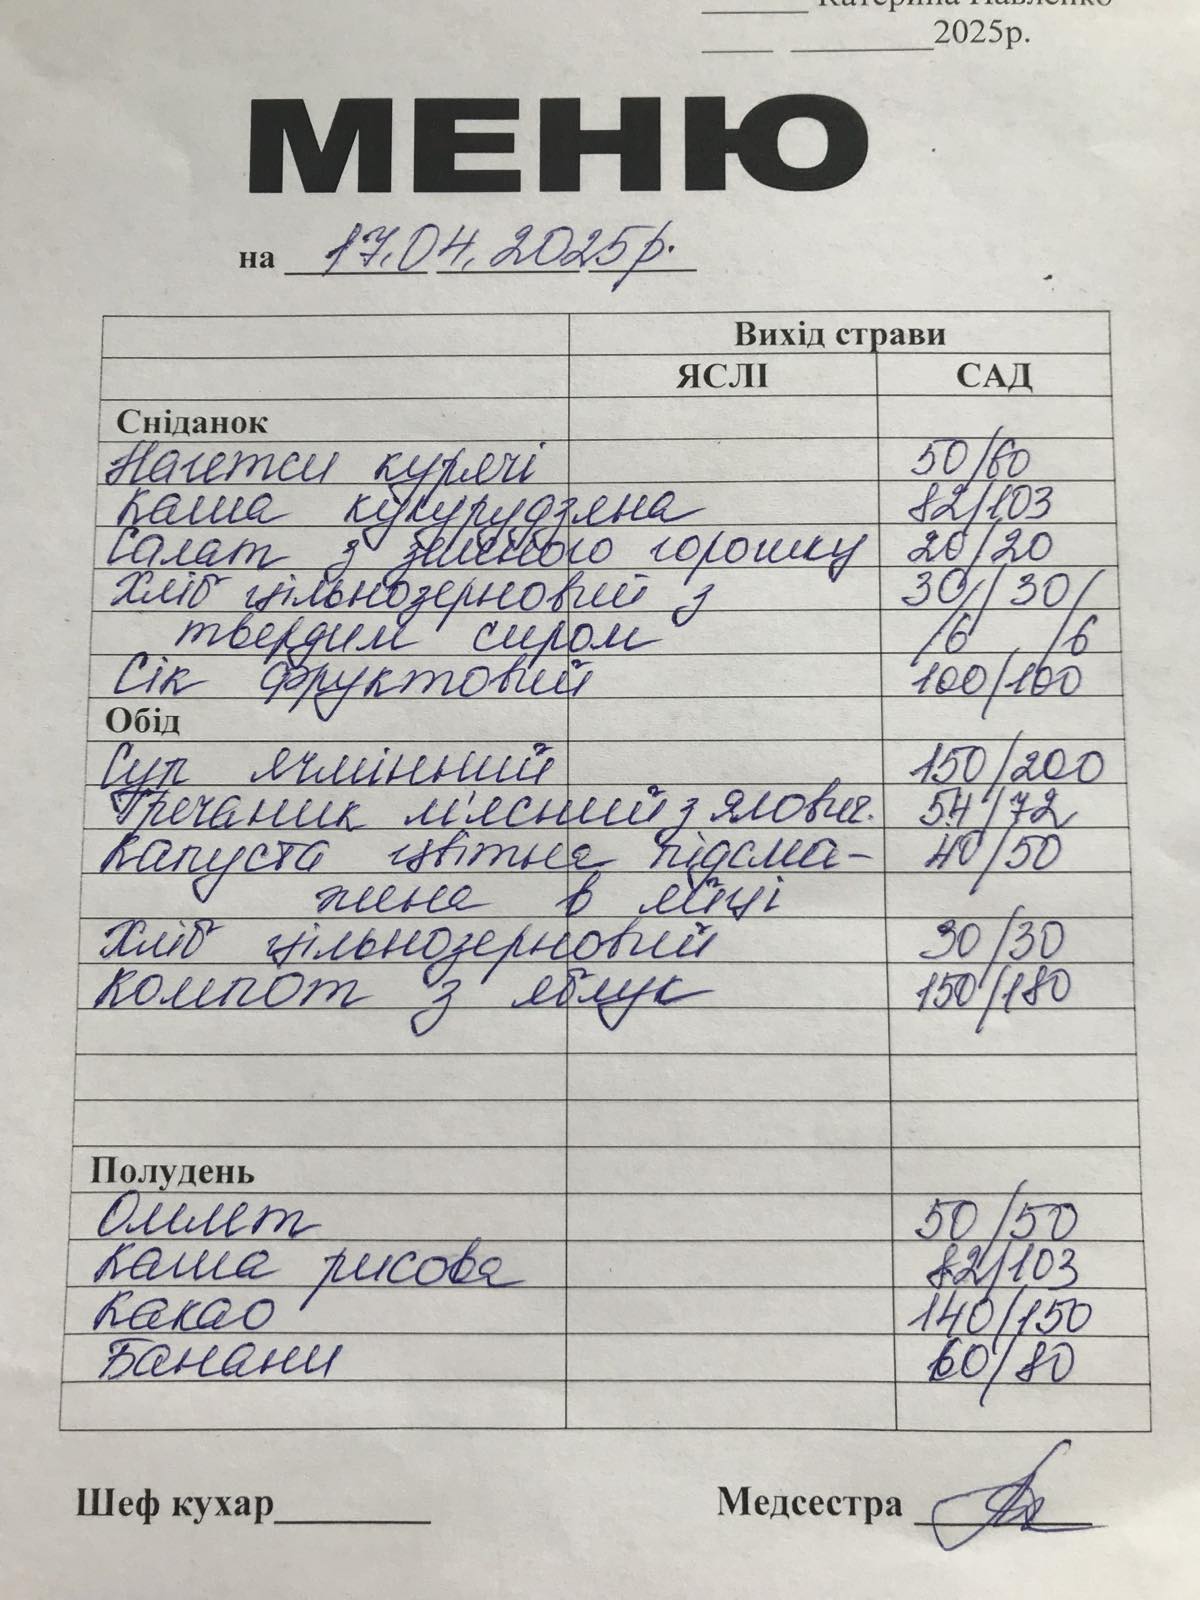 ______ Катерина Павленко
____ ________2025р.
МЕНЮ
на 17.04.2025р.
Вихід страви
ЯСЛІ САД
Сніданок
Нагетси курячі 50/60
Каша кукурудзяна 82/103
Салат з зеленого горошку 20/20
Хліб цільнозерновий з 30/ / 30/
твердим сиром /6 /6
Сік фруктовий 100/100
Обід
Суп ячмінний 150/200
Гречаник м'ясний з ялович. 54/72
Капуста цвітна підсма- 40/50
жена в яйці
Хліб цільнозерновий 30/30
Компот з яблук 150/180
Полудень
Омлет 50/50
Каша рисова 82/103
Какао 140/150
Банани 60/80
Шеф кухар________ Медсестра